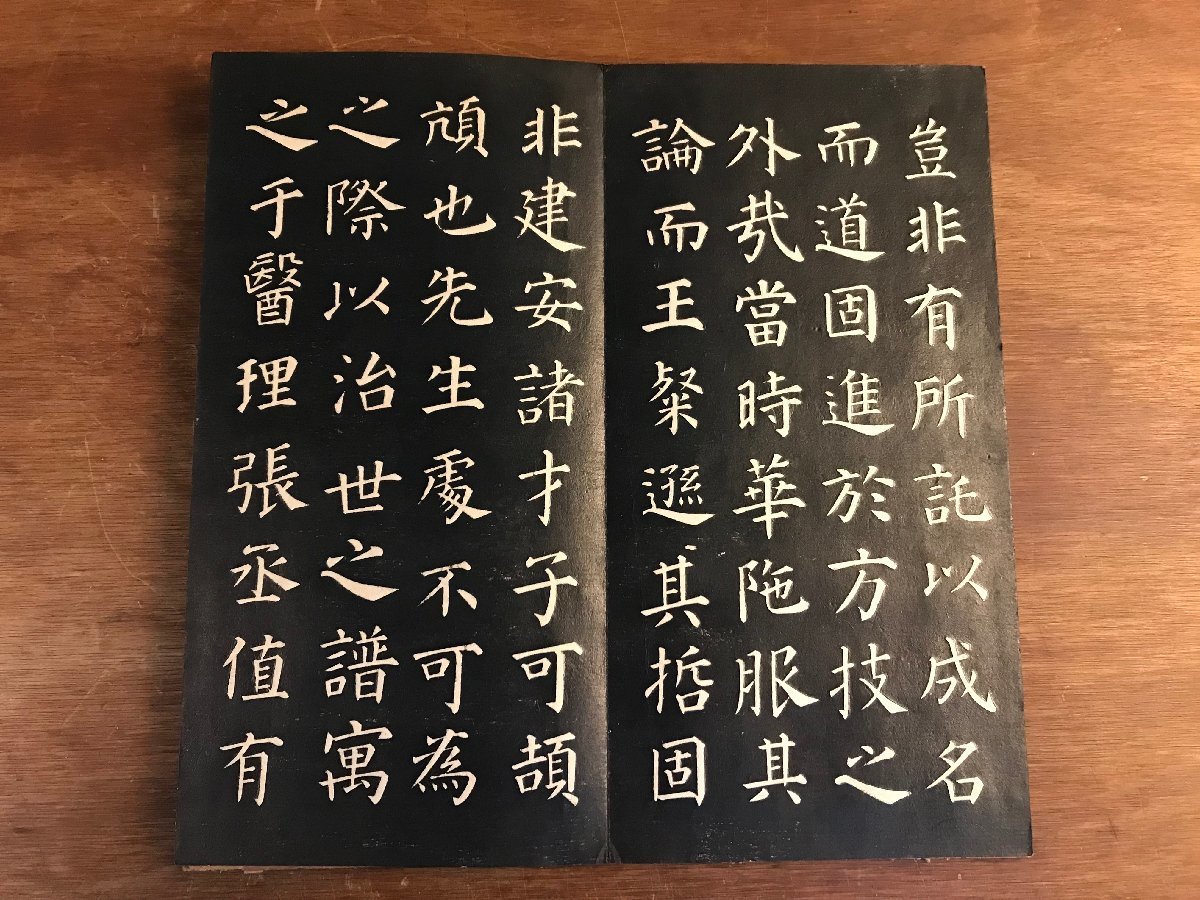 豈非有所託以成名
而道固進於方技之
外哉當時華陁服其
論而王粲遜其哲固
非建安諸才子可頡
頏也先生處不可為
之際以治世之譜寓
之于醫理張丞值有